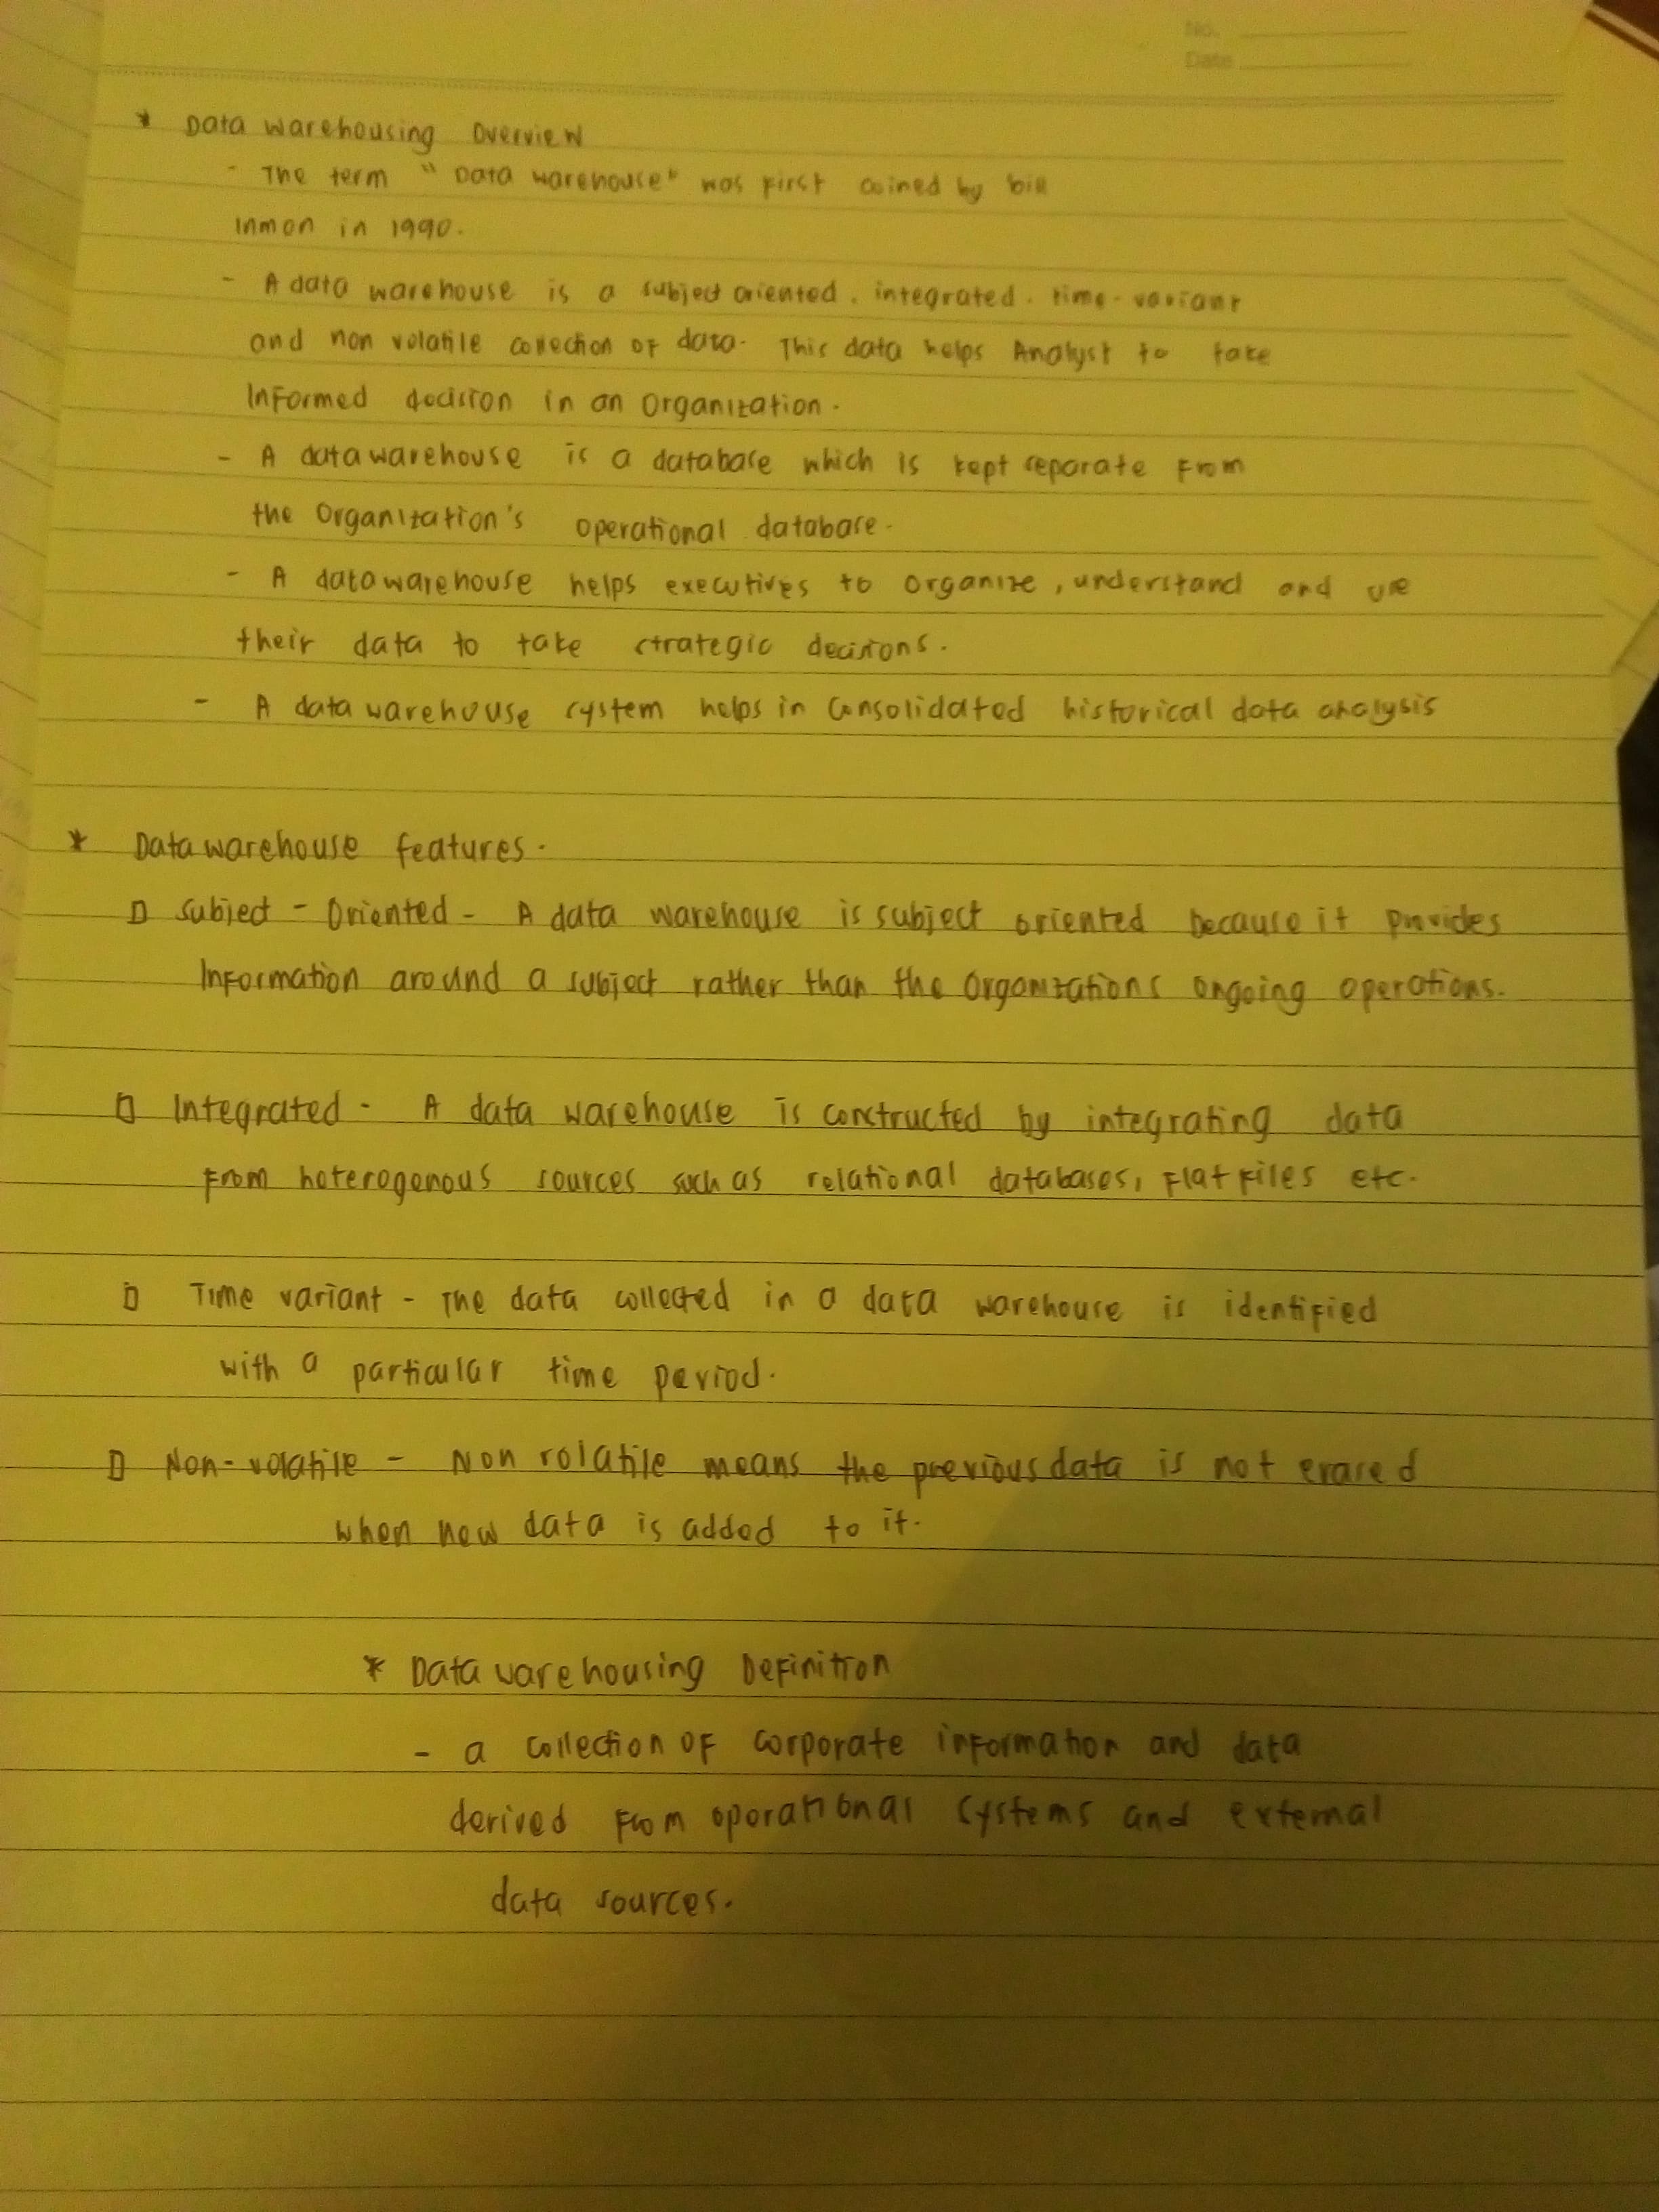 No.
Date
* Data warehousing Overview
- The term "Data warehouse" was first coined by bill
Inmon in 1990.
- A data warehouse is a subject oriented, integrated, time-variant
and non volatile collection of data. This data helps Analyst to take
Informed decision in an Organization.
- A data warehouse is a database which is kept separate from
the Organization's operational database.
- A data warehouse helps executives to organize, understand and use
their data to take strategic decisions.
- A data warehouse system helps in consolidated historical data analysis
* Data warehouse features.
▯ Subject - Oriented - A data warehouse is subject oriented because it provides
Information around a subject rather than the Organizations ongoing operations.
▯ Integrated - A data warehouse is constructed by integrating data
from heterogenous sources such as relational databases, flat files etc.
▯ Time variant - The data collected in a data warehouse is identified
with a particular time period.
▯ Non-volatile - Non volatile means the previous data is not erased
when new data is added to it.
* Data warehousing Definition
- a collection of corporate information and data
derived from operational systems and external
data sources.